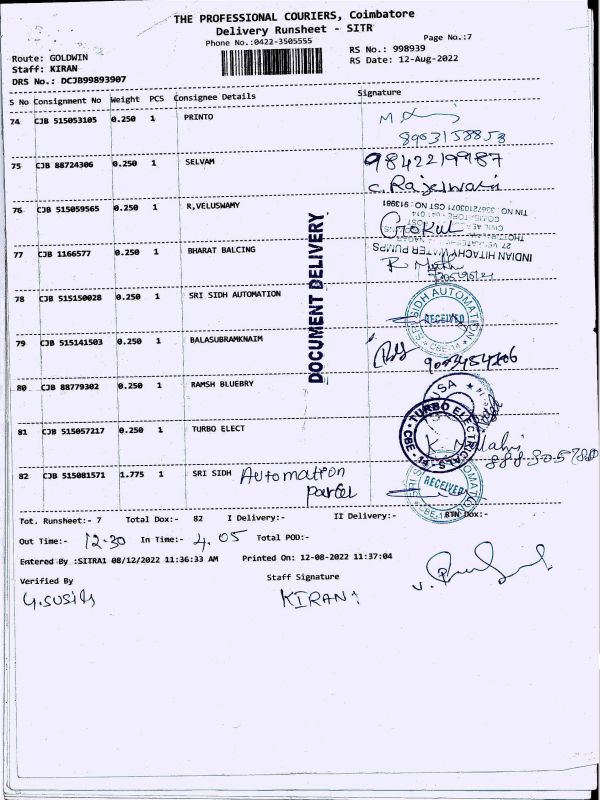 THE PROFESSIONAL COURIERS, Coimbatore
Delivery Runsheet - SITR
Phone No.:0422-3505555 Page No.:7
Route: GOLDWIN RS No.: 998939
Staff: KIRAN RS Date: 12-Aug-2022
DRS No.: DCJB99893907
S No Consignment No Weight PCS Consignee Details Signature
74 CJB 515053105 0.250 1 PRINTO
8903158853
75 CJB 88724306 0.250 1 SELVAM 9842219987
C. Rajeswari
76 CJB 515059565 0.250 1 R,VELUSWAMY Gokul
TIN NO : 33672103071 CST NO : 913981
COIMBATORE - 641 014
INDIAN HITACHY WATER PUMPS
77 CJB 1166577 0.250 1 BHARAT BALCING
DOCUMENT DELIVERY
78 CJB 515150028 0.250 1 SRI SIDH AUTOMATION
SRI SIDH AUTOMATION CBE-14 RECEIVED
79 CJB 515141503 0.250 1 BALASUBRAMKNAIM
80 CJB 88779302 0.250 1 RAMSH BLUEBRY
81 CJB 515057217 0.250 1 TURBO ELECT
TURBO ELECTRICALS CBE-14
82 CJB 515081571 1.775 1 SRI SIDH Automation
Parcel
RECEIVED
Tot. Runsheet:- 7 Total Dox:- 82 I Delivery:- II Delivery:- RTN Dox:-
Out Time:- 12-30 In Time:- 4.05 Total POD:-
Entered By :SITRA1 08/12/2022 11:36:33 AM Printed On: 12-08-2022 11:37:04
Verified By Staff Signature
KIRAN